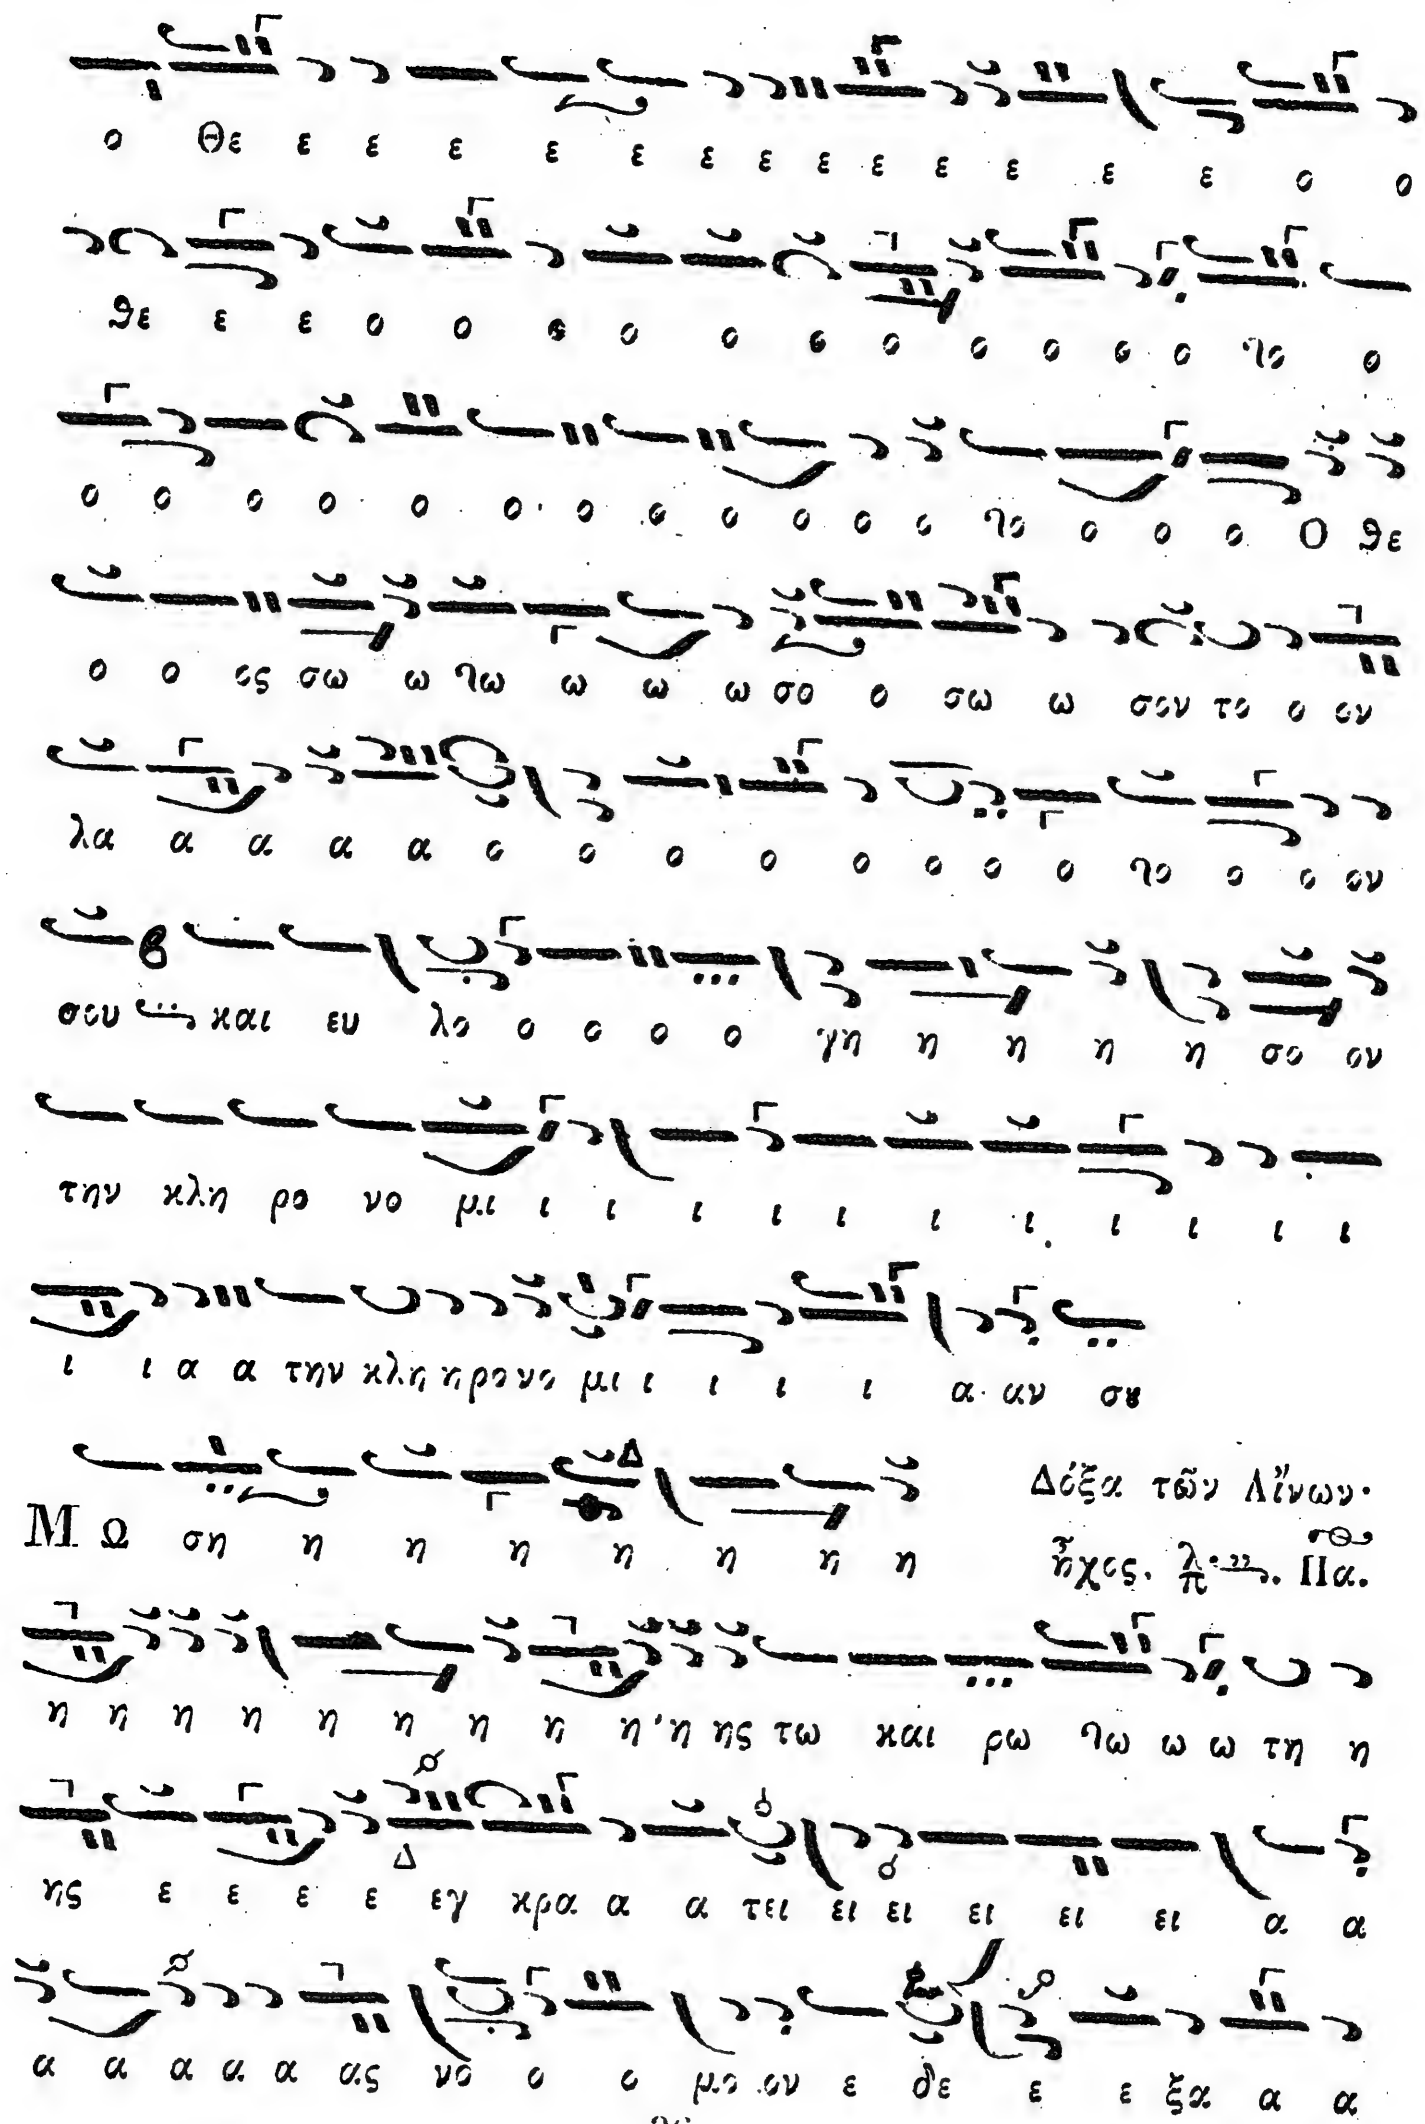 ο Θε ε ε ε ε ε ε ε ε ε ε ε ε ε ο ο
θε ε ε ο ο ο ο ο ο ο ο ο ο ο το ο
ο ο ο ο ο ο ο ο ο ο ο ο το ο ο ο Ο θε
ο ο ος σω ω τω ω ω ω σο ο σω ω σον το ο ον
λα α α α α ο ο ο ο ο ο ο ο το ο ο ον
σου και ευ λο ο ο ο ο γη η η η η σο ον
την κλη ρο νο μι ι ι ι ι ι ι ι ι ι ι ι
ι ι α α την κλη η ρο νο μι ι ι ι ι α αν σȣ
Μ Ω ση η η η η η η η
Δόξα τῶν Αἴνων·
ἦχος. λ π Πα.
η η η η η η η η η η ης τω και ρω τω ω ω τη η
ης ε ε ε ε εγ κρα α α τει ει ει ει ει ει α α
α α α α α ας νο ο ο μο ον ε δε ε ε ξα α α